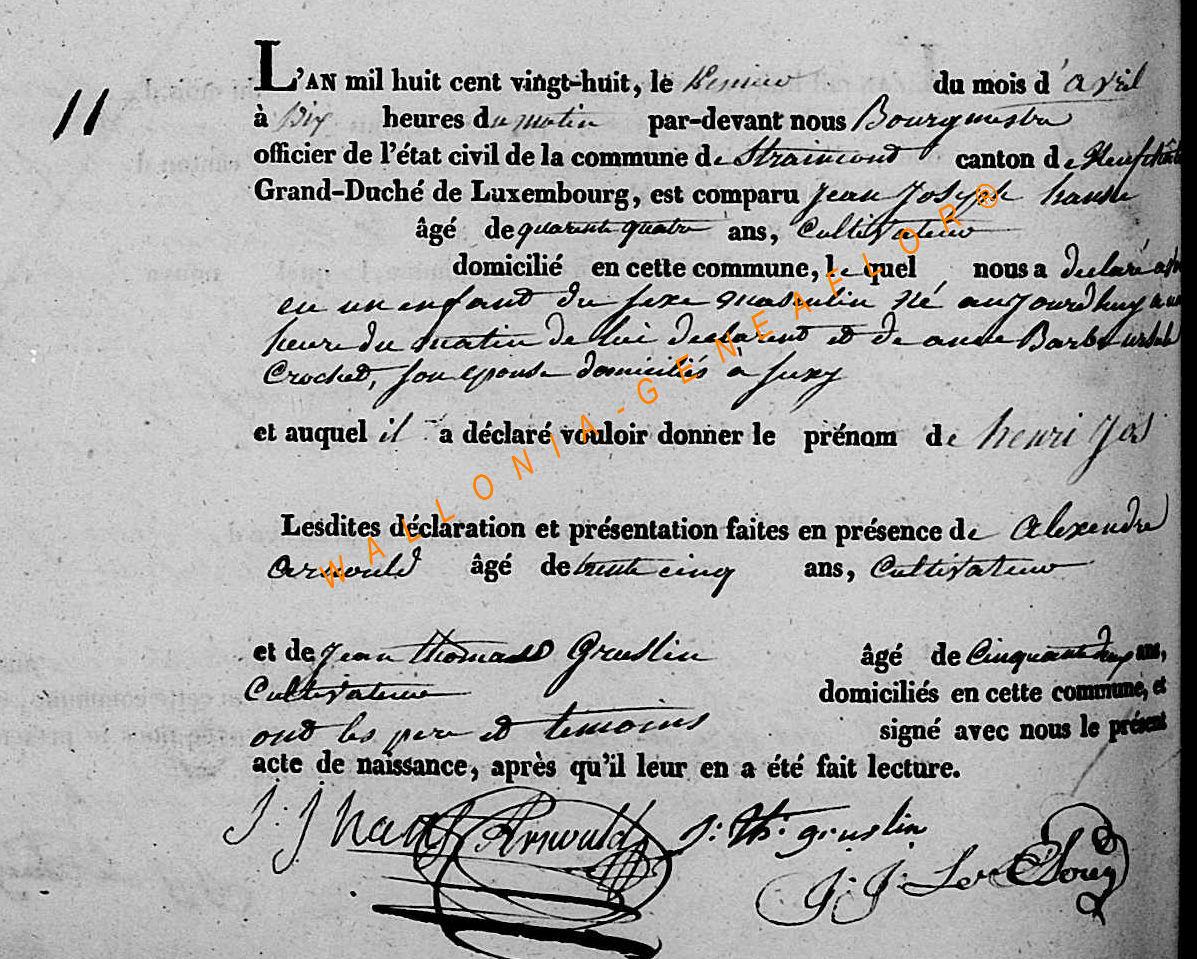 11
L'AN mil huit cent vingt-huit, le du mois d'avril
à Dix heures du matin par-devant nous Bourgmestre
officier de l'état civil de la commune de Straimont canton de Neufchâte
Grand-Duché de Luxembourg, est comparu jean joseph
âgé de quarente quatre ans, Cultivateur
domicilié en cette commune, le quel nous a declaré
en un enfant du sexe masculin né aujourd'huy a
heure du matin de lui declarent et de anne Barbe
Crochet, son epouse domiciliés a suxy
et auquel il a déclaré vouloir donner le prénom de henri Jos
Lesdites déclaration et présentation faites en présence de Alexendre
Arnould âgé de trente cinq ans, Cultivateur
et de jean thomas Gruslin âgé de Cinquante deux ans,
Cultivateur domiciliés en cette commune, et
ont les pere et temoins signé avec nous le présent
acte de naissance, après qu'il leur en a été fait lecture.
J. J Arnould J. Th. gruslin
J. J.
WALLONIA-GENEAFLOR®